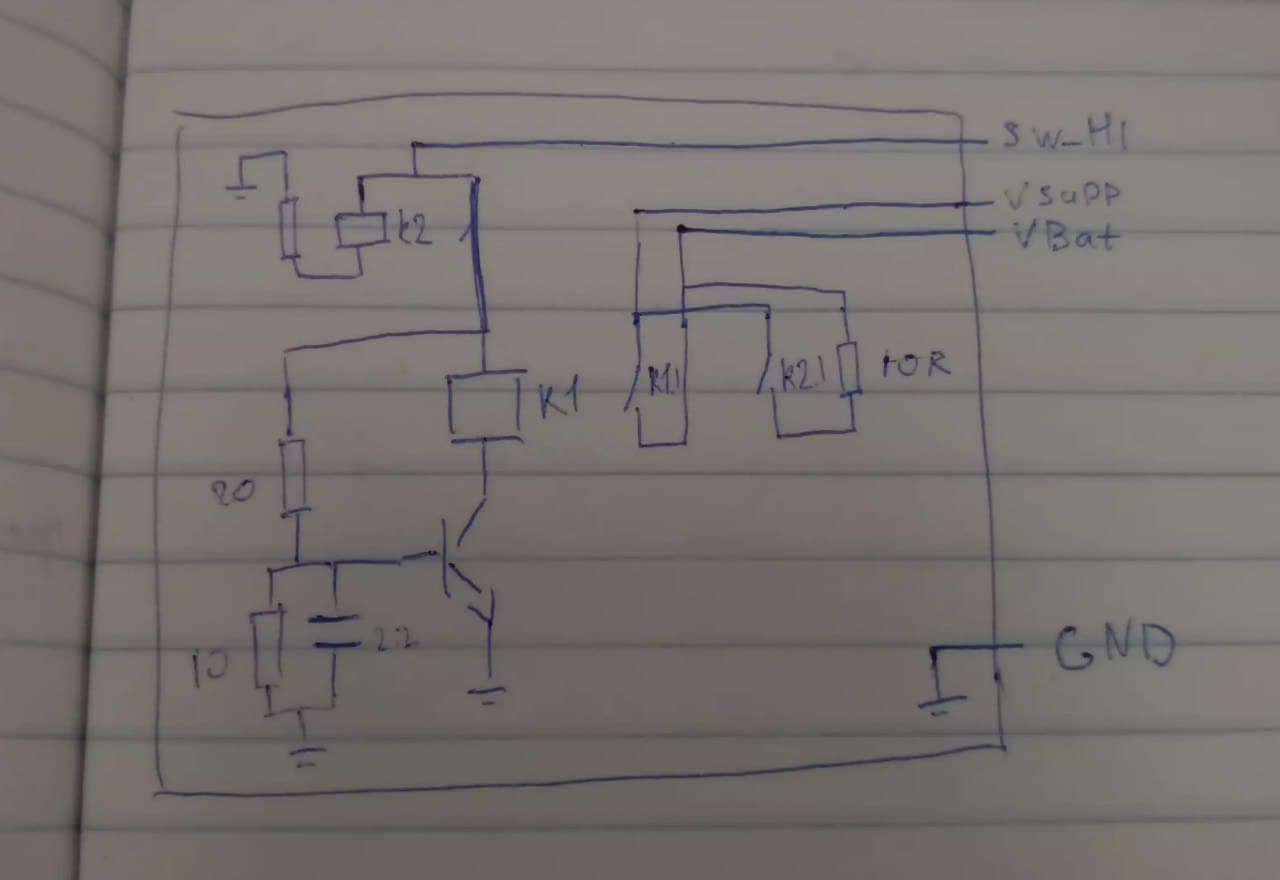 SW_Hi
Vsupp
VBat
k2
K1
K1.1
K2.1
10R
20
10
22
GND